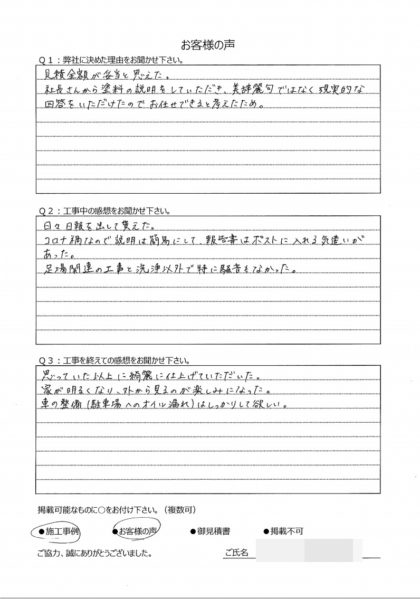 お客様の声
Q1：弊社に決めた理由をお聞かせ下さい。
見積金額が妥当と思えた。
社長さんから塗料の説明をしていただき、美辞麗句ではなく現実的な
回答をいただけたのでお任せできると考えたため。
Q2：工事中の感想をお聞かせ下さい。
日々日報を出して貰えた。
コロナ禍なので説明は簡易にして、報告書はポストに入れる気遣いが
あった。
足場関連の工事と洗浄以外で特に騒音もなかった。
Q3：工事を終えての感想をお聞かせ下さい。
思っていた以上に綺麗に仕上げていただいた。
家が明るくなり、外から見るのが楽しみになった。
車の整備(駐車場へのオイル漏れ)はしっかりして欲しい。
掲載可能なものに○をお付け下さい。（複数可）
●施工事例 ●お客様の声 ●御見積書 ●掲載不可
ご協力、誠にありがとうございました。 ご氏名